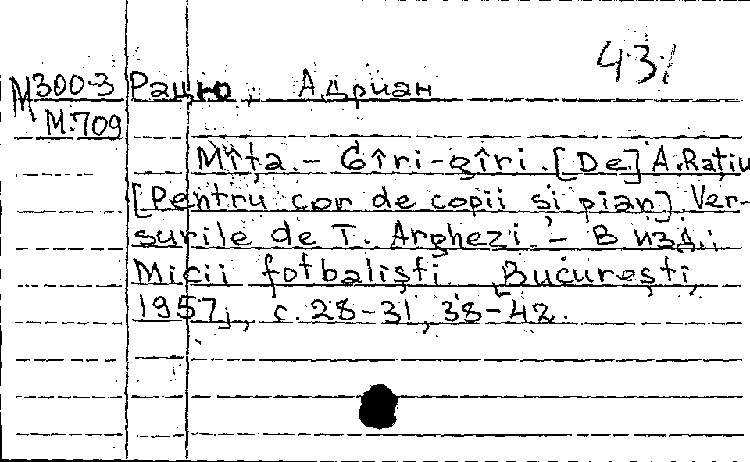 43%
М300-3 Рацию, Адриан
М.709
Mîța. - Gîri-gîri. [De] A. Rațiu
[Pentru cor de copii și pian] Ver-
surile de T. Arghezi. - В изд.:
Micii fotbaliști. București,
1957, с. 28-31, 38-42.